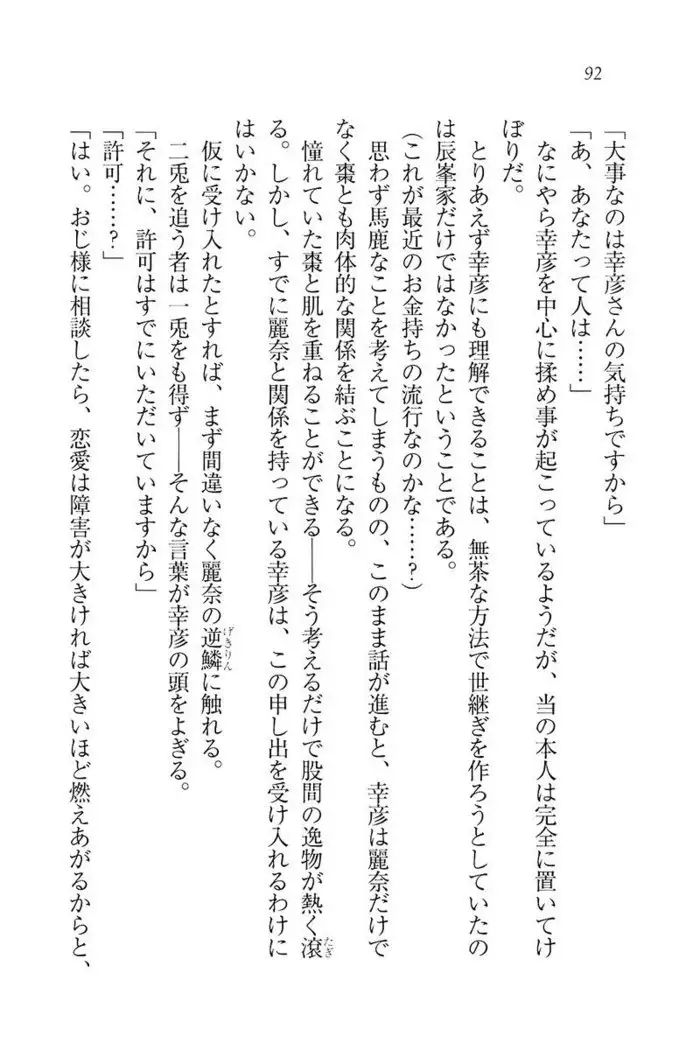 92
「大事なのは幸彦さんの気持ちですから」
「あ、あなたって人は……」
なにやら幸彦を中心に揉め事が起こっているようだが、当の本人は完全に置いてけ
ぼりだ。
とりあえず幸彦にも理解できることは、無茶な方法で世継ぎを作ろうとしていたの
は辰峯家だけではなかったということである。
（これが最近のお金持ちの流行なのかな……？）
思わず馬鹿なことを考えてしまうものの、このまま話が進むと、幸彦は麗奈だけで
なく棗とも肉体的な関係を結ぶことになる。
憧れていた棗と肌を重ねることができる――そう考えるだけで股間の逸物が熱く滾たぎ
る。しかし、すでに麗奈と関係を持っている幸彦は、この申し出を受け入れるわけに
はいかない。
仮に受け入れたとすれば、まず間違いなく麗奈の逆鱗げきりんに触れる。
二兎を追う者は一兎をも得ず――そんな言葉が幸彦の頭をよぎる。
「それに、許可はすでにいただいていますから」
「許可……？」
「はい。おじ様に相談したら、恋愛は障害が大きければ大きいほど燃えあがるからと、